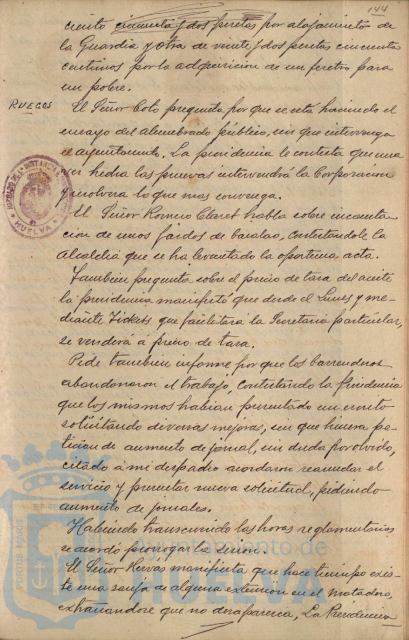 144
ciento cincuenta y dos pesetas por alojamiento de
la Guardia y otra de veinte y dos pesetas cincuenta
centimos por la adquisicion de un feretro para
un pobre.
RUEGOS
El Señor Coto pregunta por que se está haciendo el
ensayo del alumbrado público, sin que intervenga
el ayuntamiento. La presidencia le contesta que una
vez hechas las pruebas intervendrá la Corporacion
y resolvera lo que mas convenga.
El Señor Romero Claret habla sobre incauta-
cion de unos fardos de bacalao, contestandole la
Alcaldia que se ha levantado la oportuna acta.
Tambien pregunta sobre el precio de tasa del aceite
la presidencia manifestó que desde el Lunes y me-
diante Tickets que facilitará la Secretaria particular,
se venderá a precio de tasa.
Pide tambien informe por que los barrenderos
abandonaron el trabajo, contestando la Presidencia
que los mismos habian presentado un escrito
solicitando diversas mejoras, sin que hiciera pe-
ticion de aumento de jornal, sin duda por olvido,
citado á mi despacho acordaron reanudar el
servicio y presentar nueva solicitud, pidiendo
aumento de jornales.
Habiendo transcurrido las horas reglamentarias
se acordó prorrogar la sesion.
El Señor Hervás manifiesta que hace tiempo exis-
te una zanja de alguna extension en el matadero,
extrañandose que no desaparezca, La Presidencia
HUELVA
Ayuntamiento de
HUELVA
PORTUS MARIS